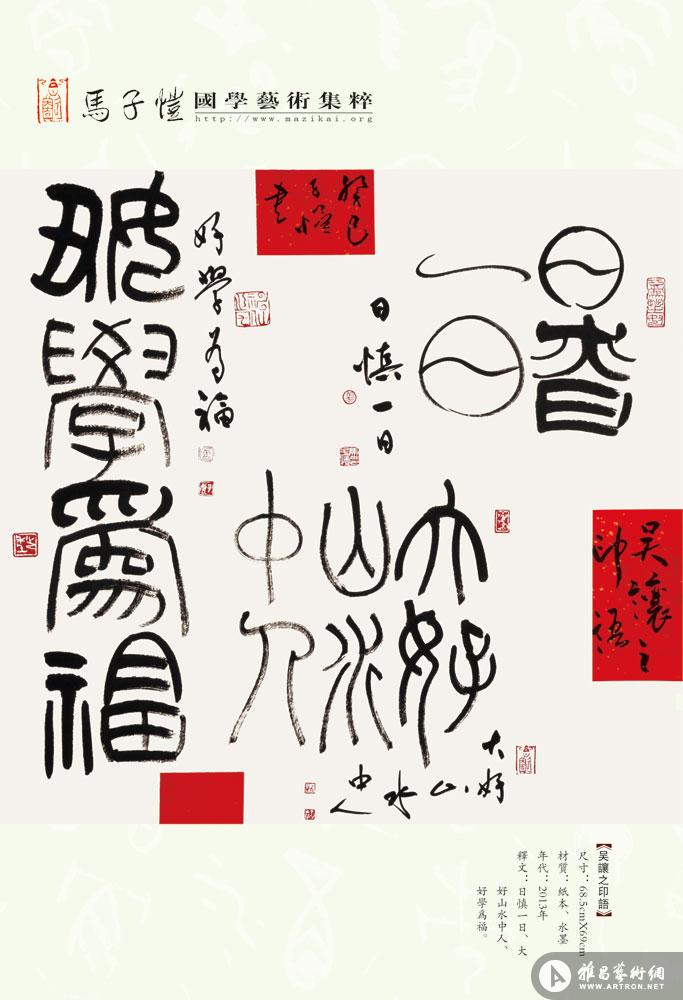 馬子愷 國學藝術集粹
http://www.mazikai.org
日慎
一日
日慎一日
大好
山水
中人
大好
山水
中人
好學為福
好學为福
癸巳
子愷
书
吴讓之
印語
《吴讓之印語》
尺寸：68.5cmX69cm
材質：紙本、水墨
年代：2013年
釋文：日慎一日、大
好山水中人、
好學爲福。
雅昌藝術網
WWW.ARTRON.NET